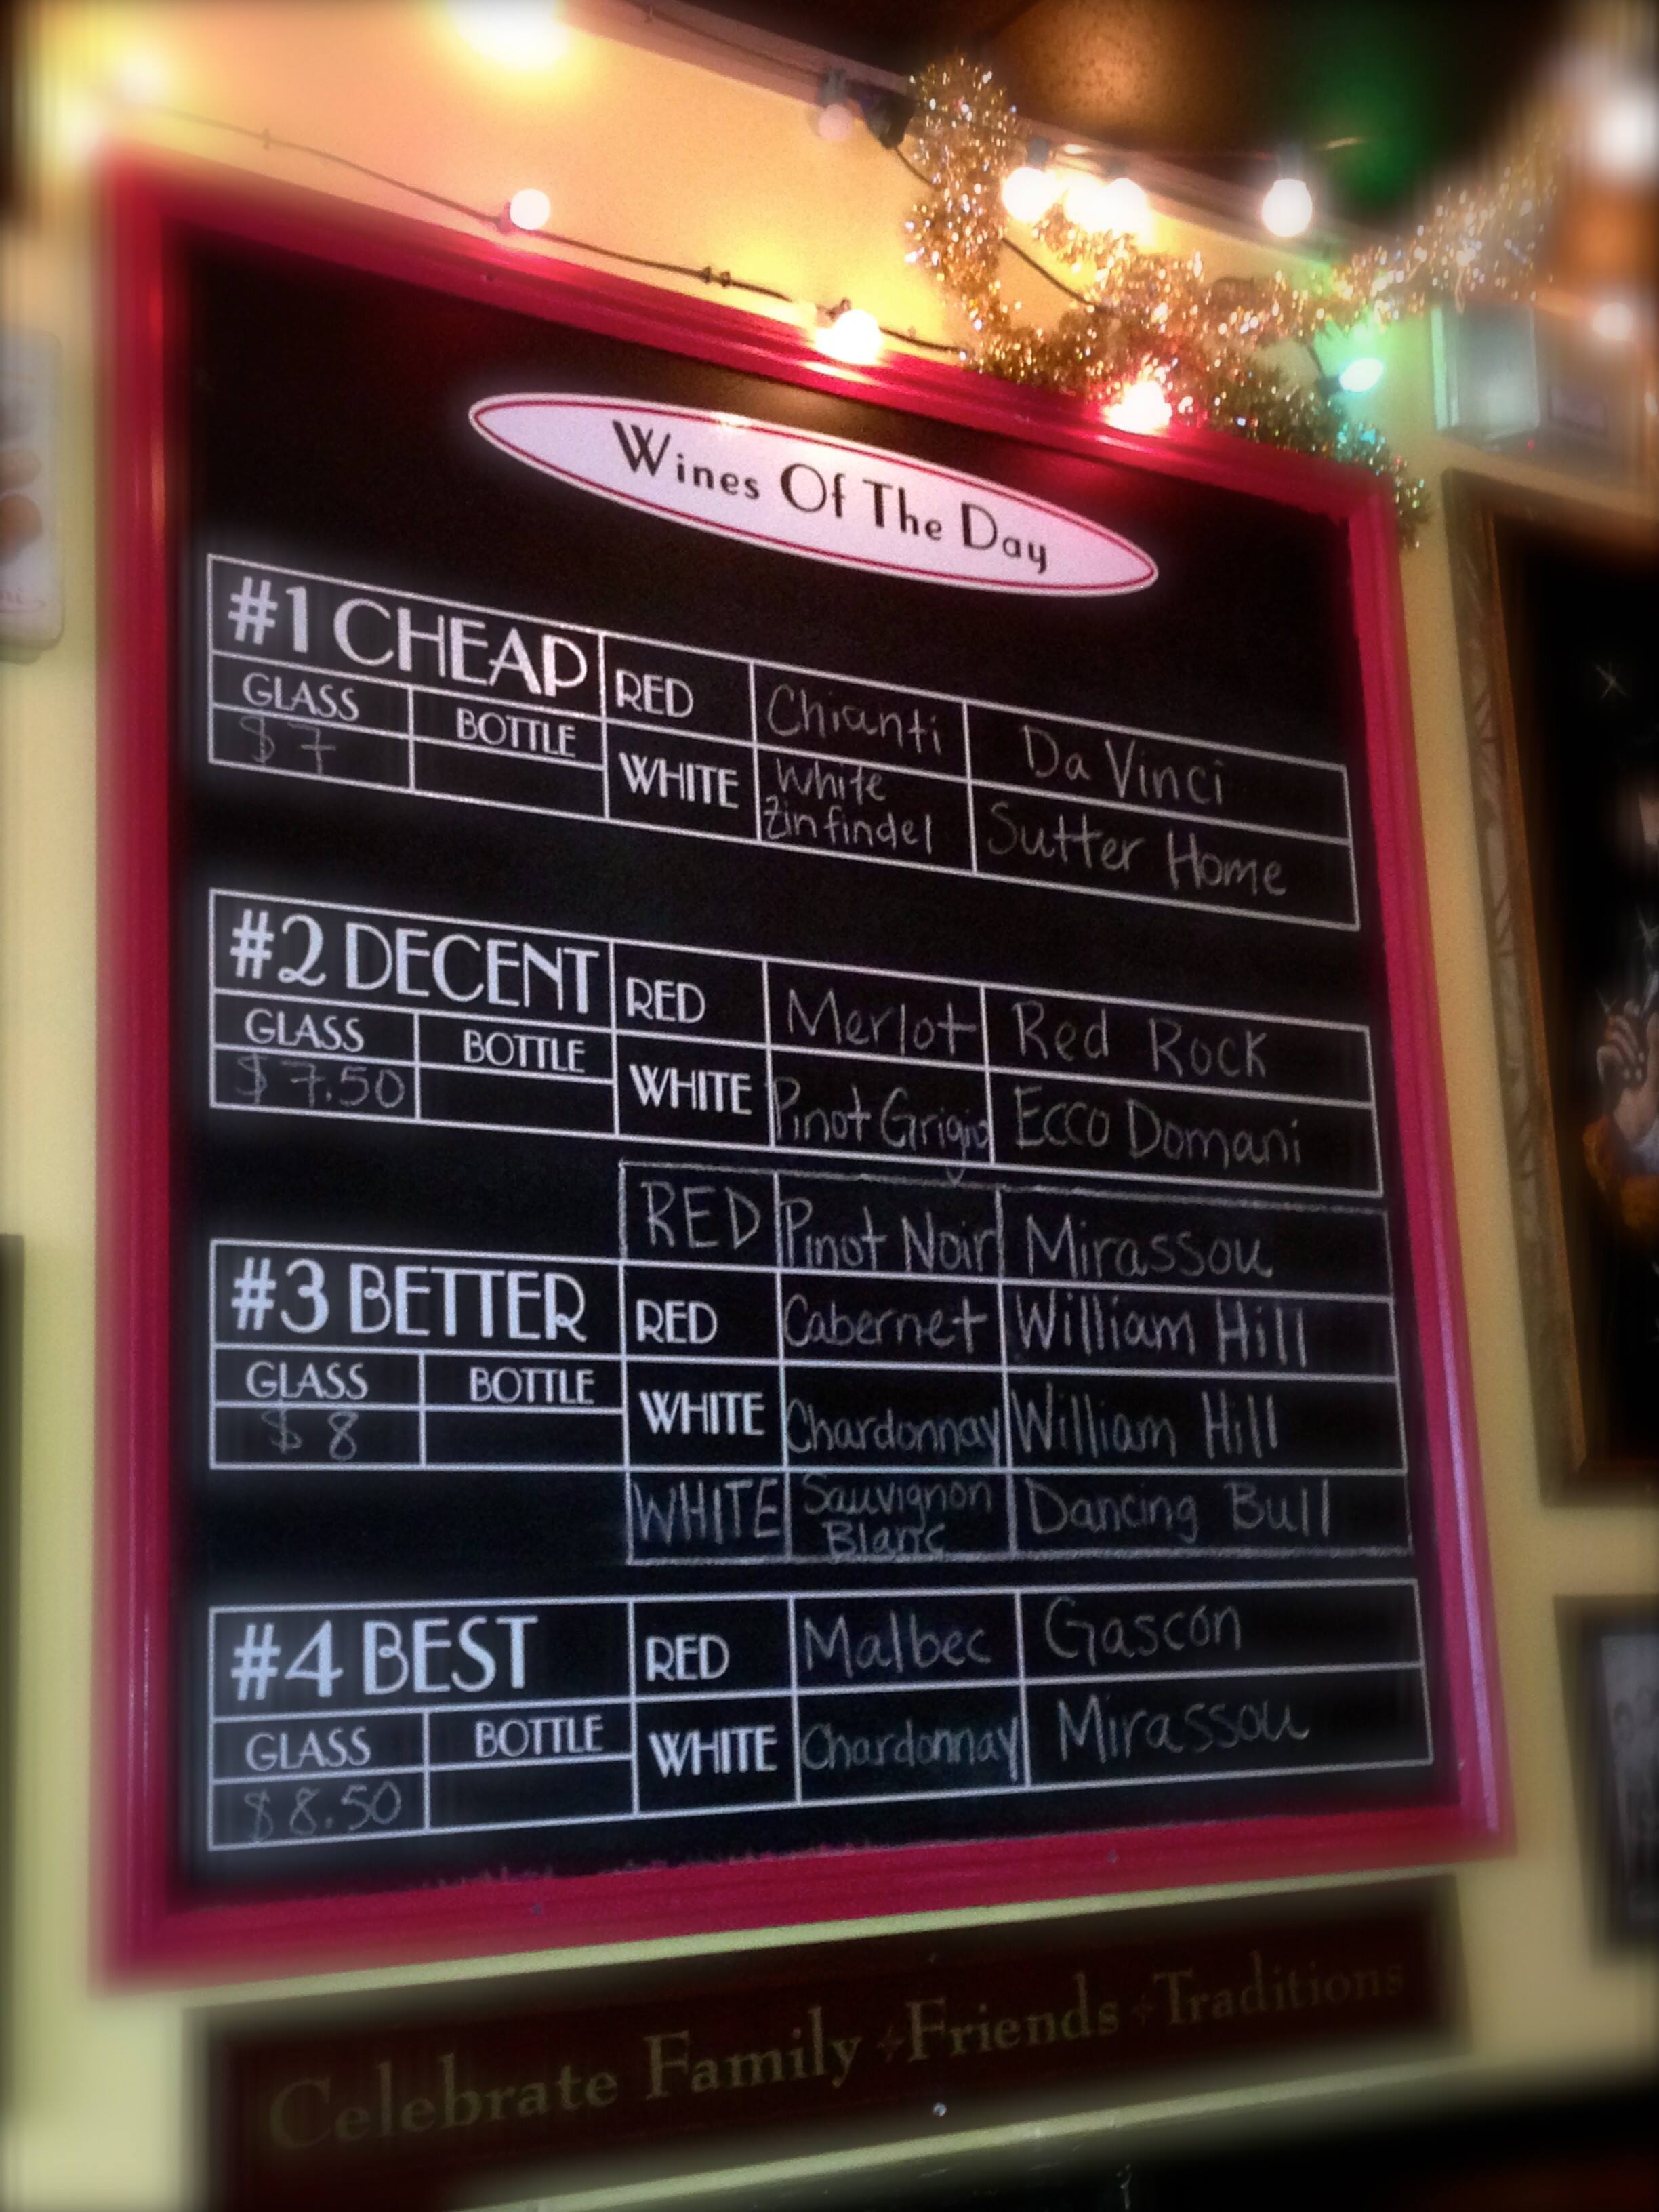 Wines Of The Day
#1 CHEAP RED Chianti Da Vinci
GLASS BOTTLE WHITE White Zinfindel Sutter Home
$7
#2 DECENT RED Merlot Red Rock
GLASS BOTTLE WHITE Pinot Grigio Ecco Domani
$7.50
RED Pinot Noir Mirassou
#3 BETTER RED Cabernet William Hill
GLASS BOTTLE WHITE Chardonnay William Hill
$8
WHITE Sauvignon Blanc Dancing Bull
#4 BEST RED Malbec Gascon
GLASS BOTTLE WHITE Chardonnay Mirassou
$8.50
Celebrate Family + Friends + Traditions